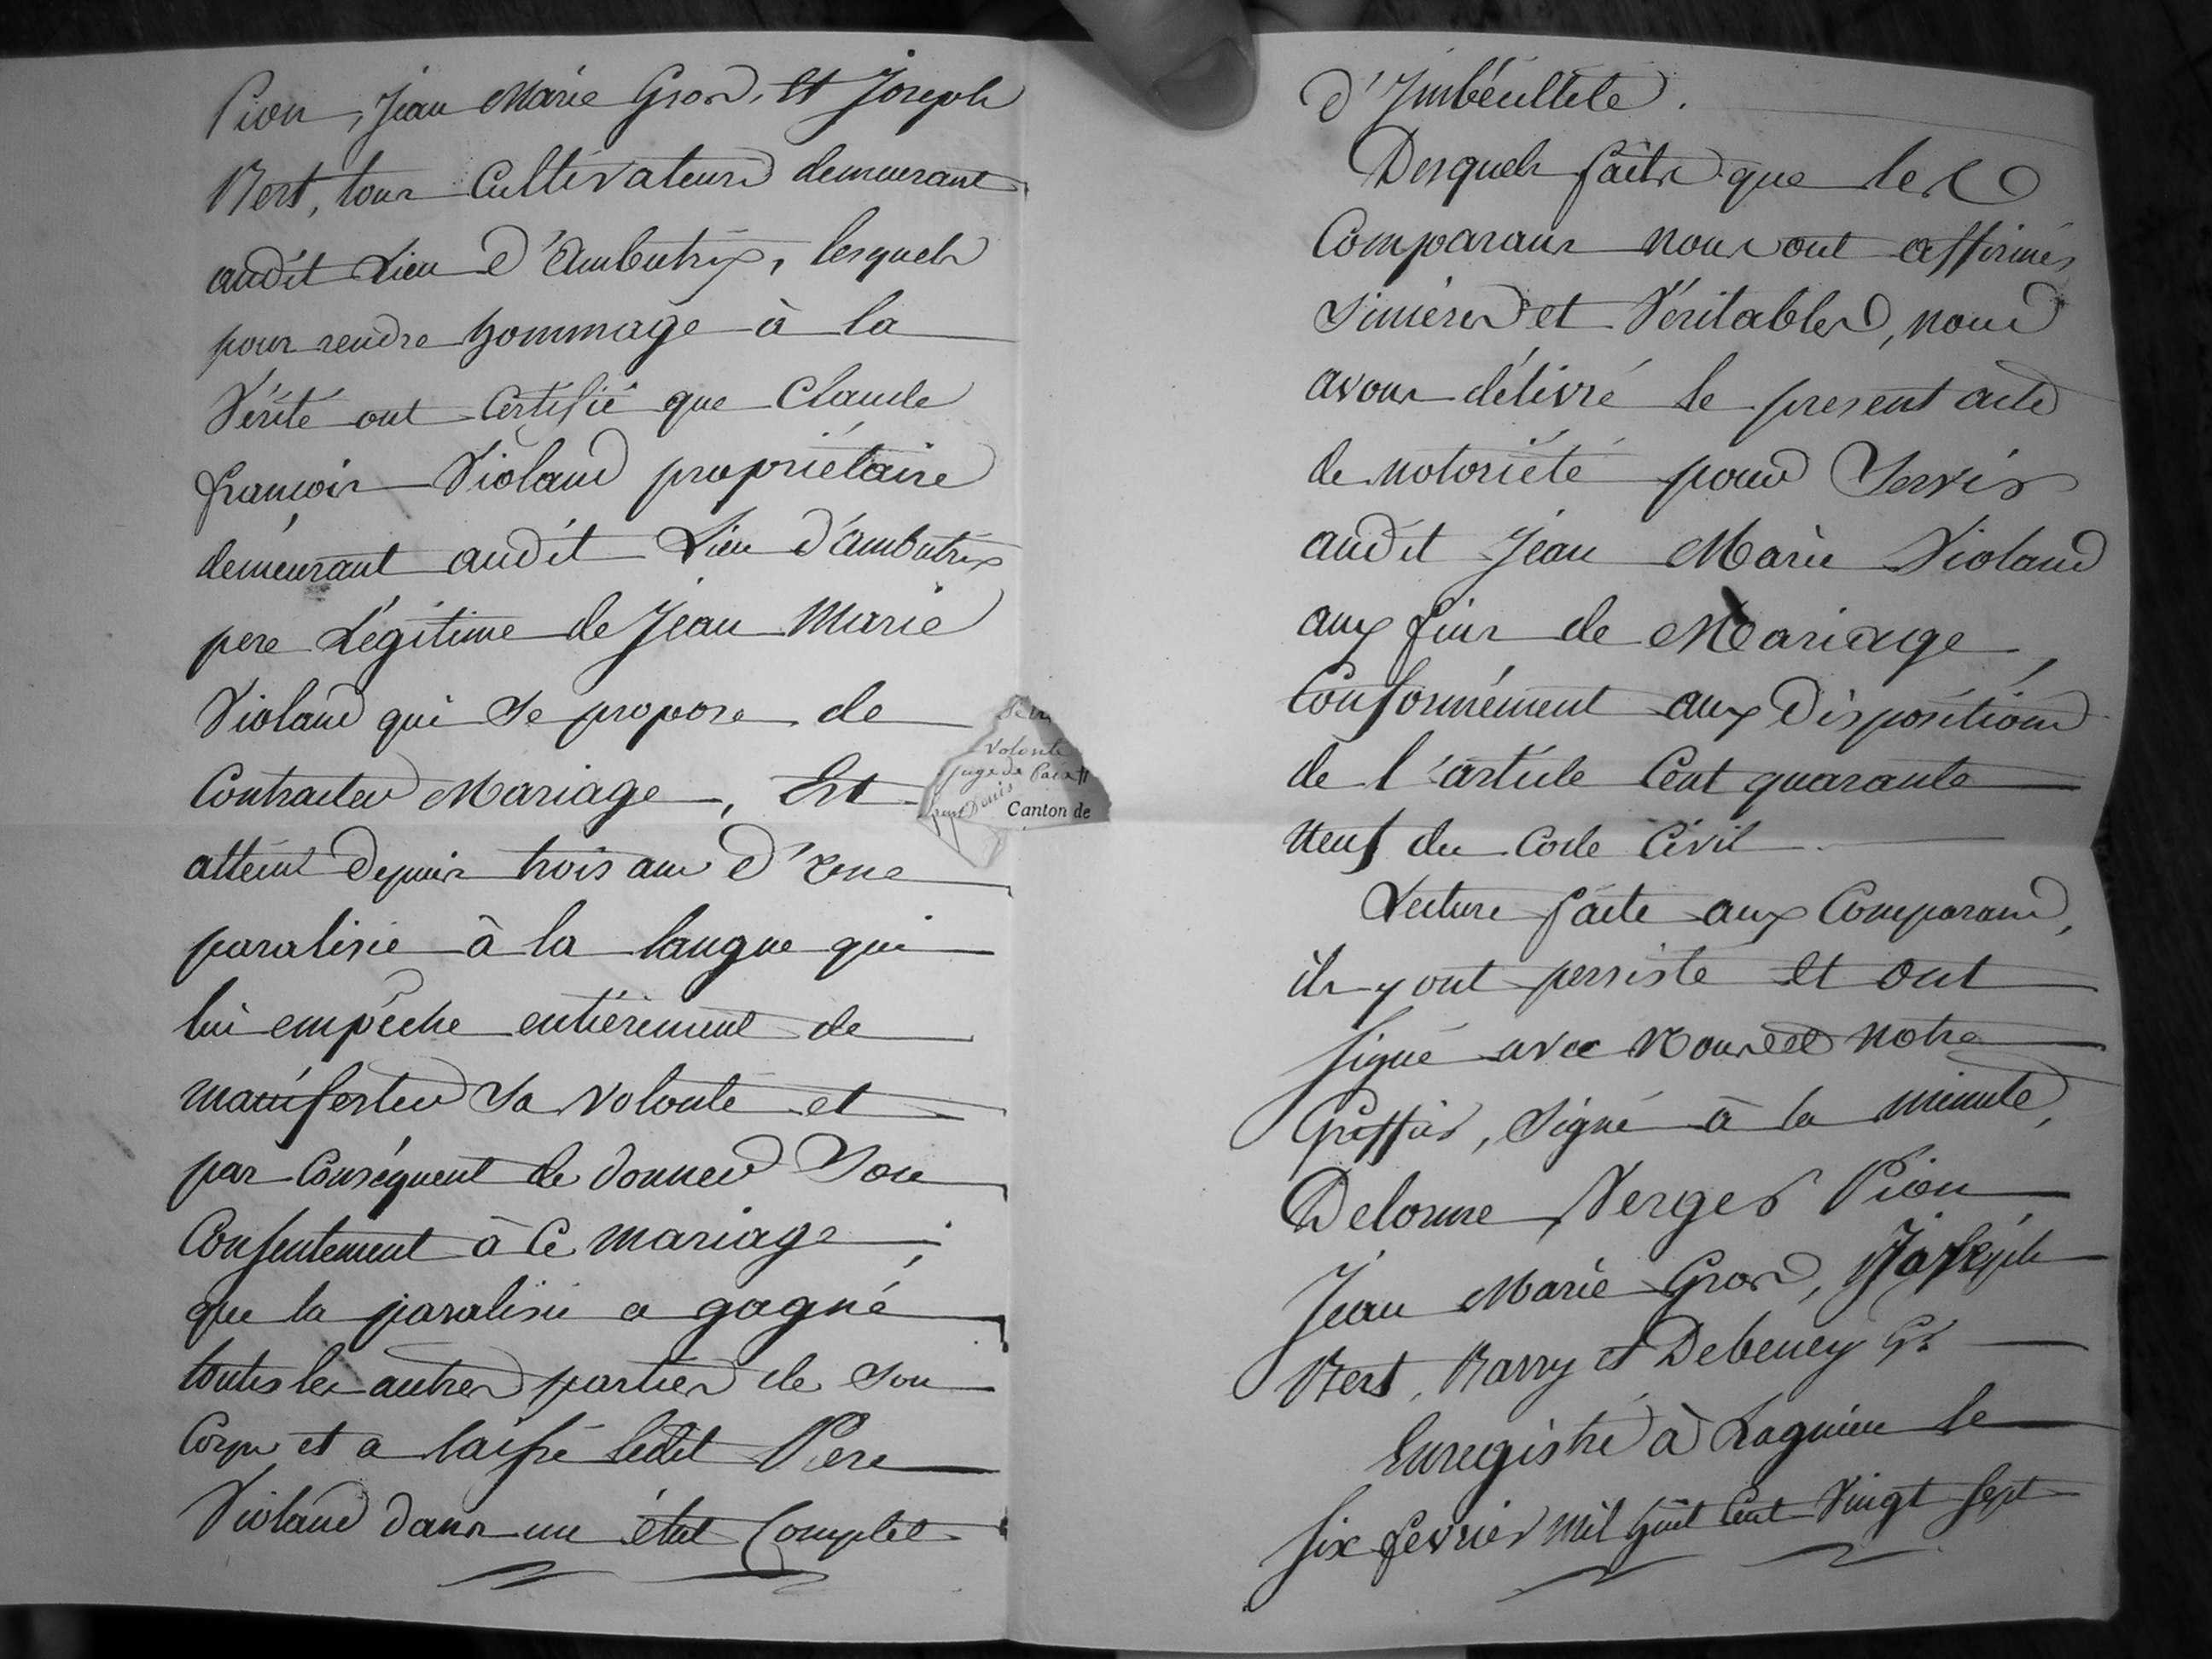 Pion, Jean Marie Gros, et Joseph
Bert, tous Cultivateurs demeurant
audit Lieu d'Ambutrix, lesquels
pour rendre hommage à la
Vérité ont Certifié que Claude
françois Violand propriétaire
demeurant audit Lieu d'ambutrix
pere Légitime de Jean Marie
Violand qui se propose de
Contracter Mariage, Est
atteint depuis trois ans d'une
paralisie à la langue qui
lui empêche entièrement de
manifester sa volonté et
par Conséquent de donner Son
Consentement à Ce mariage;
que la paralisie a gagné
toutes les autres parties de son
Corps et a laissé ledit Pere
Violand dans un état Complet
volonté
juge de Paix
Canton de
d'Imbécillité.
Desquels faits que les
Comparans nous ont affirmés
sincères et Véritables, nous
avons délivré le present acte
de notoriété pour Servir
audit Jean Marie Violand
aux fins de Mariage,
Conformément aux Dispositions
de l'article Cent quarante
neuf du Code Civil.
Lecture faite aux Comparans,
ils y ont persisté et ont
signé avec Nous et notre
Greffier, signé à la minute,
Delorme, Verger Pion
Jean Marie Gros, Joseph
Bert, Barry et Debeney Gr
Enregistré à Lagnieu le
six fevrier mil huit Cent Vingt sept